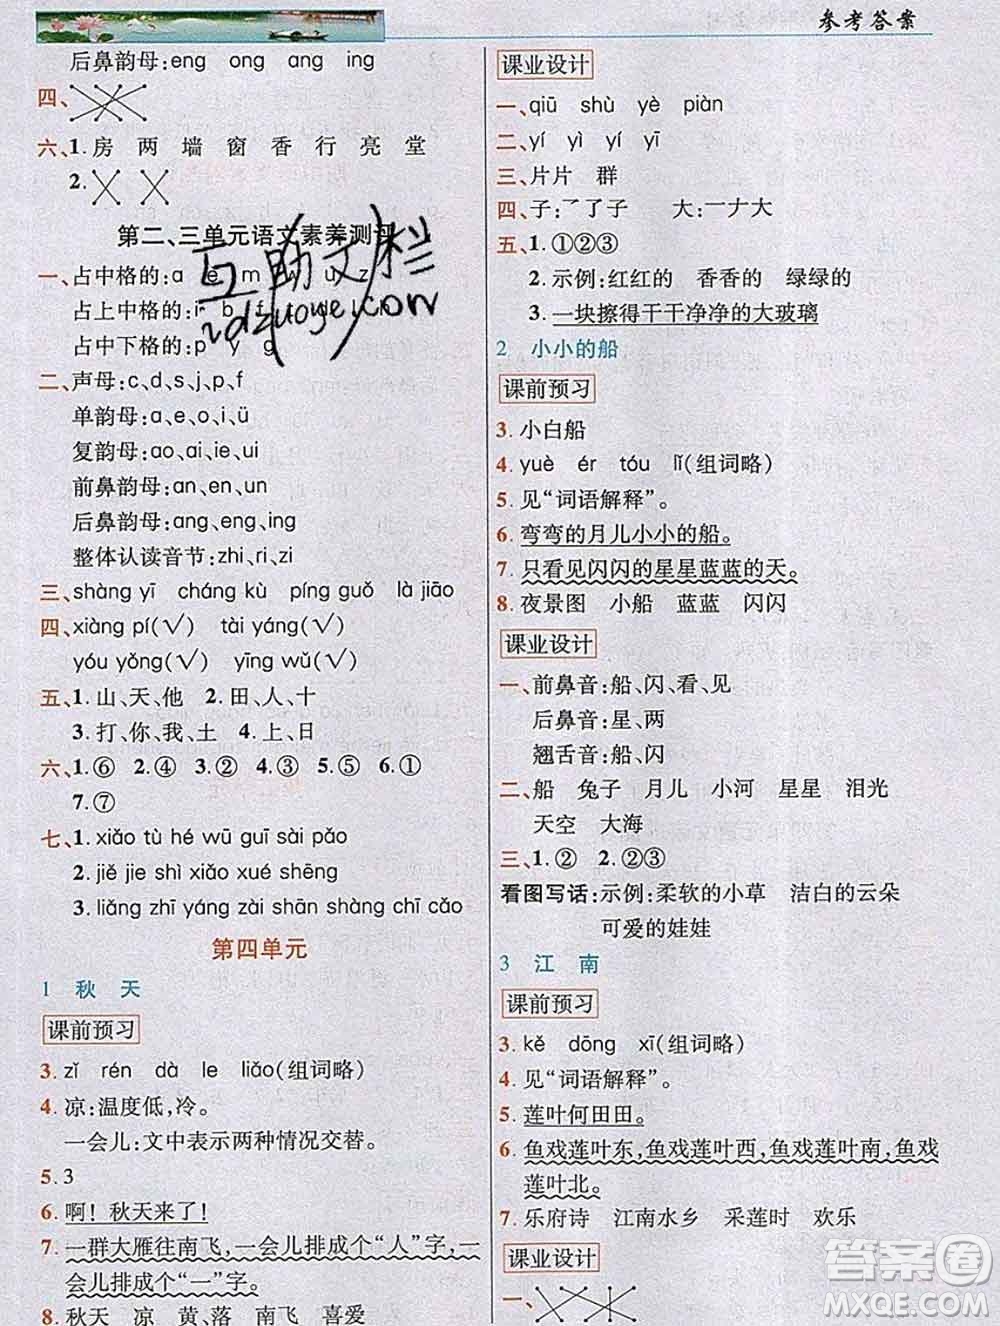 参考答案
后鼻韵母:eng ong ang ing
四、
六、1. 房 两 墙 窗 香 行 亮 堂
2.
第二、三单元语文素养测
一、占中格的:a e m u z
占上中格的:i b f
占中下格的:p y g
二、声母:c、d、s、j、p、f
单韵母:a、e、o、i、ü
复韵母:ao、ai、ie、ui
前鼻韵母:an、en、un
后鼻韵母:ang、eng、ing
整体认读音节:zhi、ri、zi
三、shàng yī cháng kù píng guǒ là jiāo
四、xiàng pí(√) tài yáng(√)
yóu yǒng(√) yīng wǔ(√)
五、1. 山、天、他 2. 田、人、十
3. 打、你、我、土 4. 上、日
六、1. ⑥ 2. ④ 3. ② 4. ③ 5. ① 6. ⑤
7. ⑦
七、1. xiǎo tù hé wū guī sài pǎo
2. jiě jie shì xiǎo xué shēng
3. liǎng zhī yáng zài shān shàng chī cǎo
第四单元
1 秋 天
课前预习
3. zǐ rén dà le liǎo(组词略)
4. 凉:温度低,冷。
一会儿:文中表示两种情况交替。
5. 3
6. 啊!秋天来了!
7. 一群大雁往南飞,一会儿排成个“人”字,一
会儿排成个“一”字。
8. 秋天 凉 黄、落 南飞 喜爱
课业设计
一、qiū shù yè piàn
二、yí yì yí yī
三、片片 群
四、子:㇇了子 大:一ナ大
五、1. ①②③
2. 示例:红红的 香香的 绿绿的
3. 一块擦得干干净净的大玻璃
2 小小的船
课前预习
3. 小白船
4. yuè ér tóu lǐ(组词略)
5. 见“词语解释”。
6. 弯弯的月儿小小的船。
7. 只看见闪闪的星星蓝蓝的天。
8. 夜景图 小船 蓝蓝 闪闪
课业设计
一、前鼻音:船、闪、看、见
后鼻音:星、两
翘舌音:船、闪
二、船 兔子 月儿 小河 星星 泪光
天空 大海
三、1. ② 2. ②③
看图写话:示例:柔软的小草 洁白的云朵
可爱的娃娃
3 江 南
课前预习
3. kě dōng xī(组词略)
4. 见“词语解释”。
5. 莲叶何田田。
6. 鱼戏莲叶东,鱼戏莲叶西,鱼戏莲叶南,鱼戏
莲叶北。
7. 乐府诗 江南水乡 采莲时 欢乐
课业设计
一、
答案圈
MXQE.COM